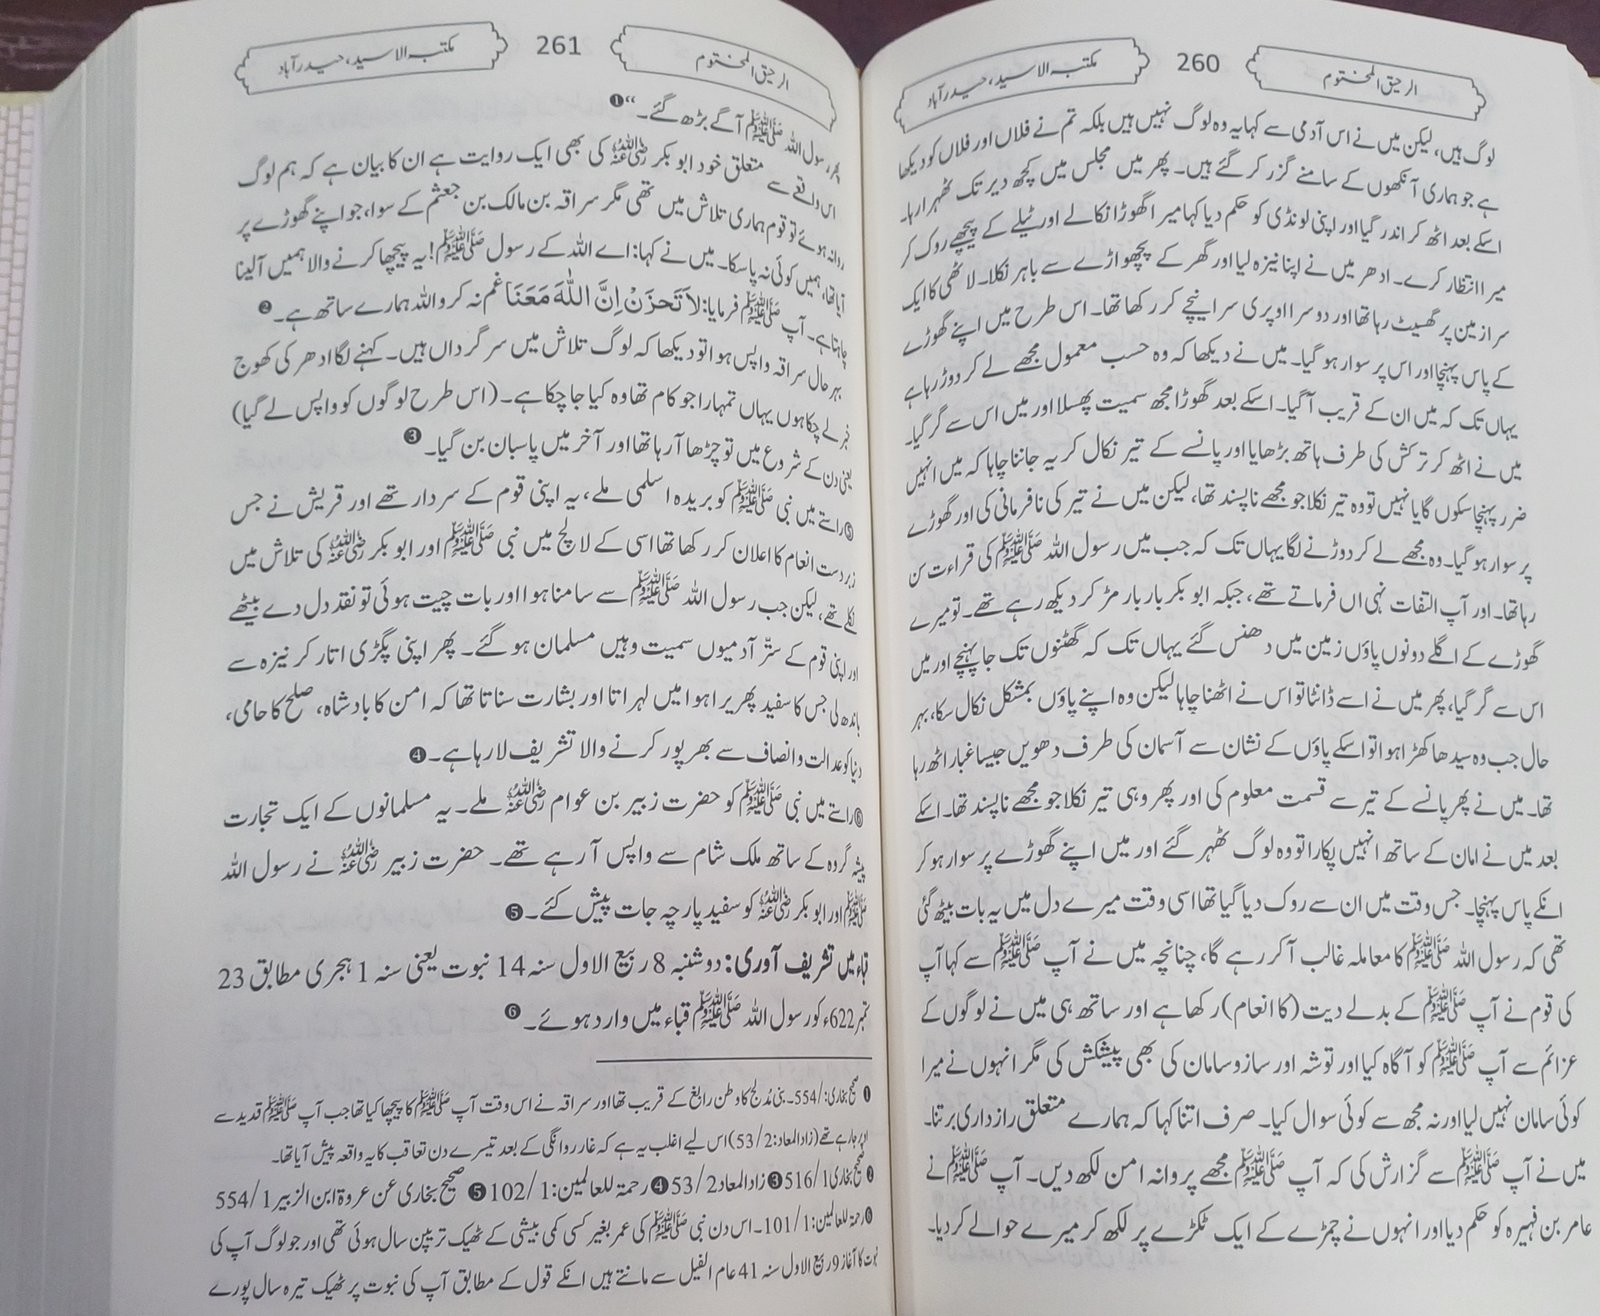 الرحیق المختوم
260
مکتبہ الاسید، حیدرآباد
لوگ ہیں، لیکن میں نے اس آدمی سے کہا یہ وہ لوگ نہیں ہیں بلکہ تم نے فلاں اور فلاں کو دیکھا
ہے جو ہماری آنکھوں کے سامنے گزر کر گئے ہیں۔ پھر میں مجلس میں کچھ دیر تک ٹھہرا رہا۔
اسکے بعد اٹھ کر اندر گیا اور اپنی لونڈی کو حکم دیا کہ میرا گھوڑا نکالے اور ٹیلے کے پیچھے روک کر
میرا انتظار کرے۔ ادھر میں نے اپنا نیزہ لیا اور گھر کے پچھواڑے سے باہر نکلا۔ لاٹھی کا ایک
سرا زمین پر گھسیٹ رہا تھا اور دوسرا اوپری سرا نیچے کر رکھا تھا۔ اس طرح میں اپنے گھوڑے
کے پاس پہنچا اور اس پر سوار ہو گیا۔ میں نے دیکھا کہ وہ حسب معمول مجھے لے کر دوڑ رہا ہے
یہاں تک کہ میں ان کے قریب آگیا۔ اسکے بعد گھوڑا مجھ سمیت پھسلا اور میں اس سے گر گیا۔
میں نے اٹھ کر ترکش کی طرف ہاتھ بڑھایا اور پانسے کے تیر نکال کر یہ جاننا چاہا کہ میں انہیں
ضرر پہنچا سکوں گا یا نہیں تو وہ تیر نکلا جو مجھے ناپسند تھا، لیکن میں نے تیر کی نافرمانی کی اور گھوڑے
پر سوار ہو گیا۔ وہ مجھے لے کر دوڑنے لگا یہاں تک کہ جب میں رسول اللہ ﷺ کی قراءت سن
رہا تھا۔ اور آپ التفات نہی اں فرماتے تھے، جبکہ ابو بکر بار بار مڑ کر دیکھ رہے تھے۔ تو میرے
گھوڑے کے اگلے دونوں پاؤں زمین میں دھنس گئے یہاں تک کہ گھٹنوں تک جا پہنچے اور میں
اس سے گر گیا، پھر میں نے اسے ڈانٹا تو اس نے اٹھنا چاہا لیکن وہ اپنے پاؤں بمشکل نکال سکا، بہر
حال جب وہ سیدھا کھڑا ہوا تو اسکے پاؤں کے نشان سے آسمان کی طرف دھویں جیسا غبار اٹھ رہا
تھا۔ میں نے پھر پانسے کے تیر سے قسمت معلوم کی اور پھر وہی تیر نکلا جو مجھے ناپسند تھا۔ اسکے
بعد میں نے امان کے ساتھ انہیں پکارا تو وہ لوگ ٹھہر گئے اور میں اپنے گھوڑے پر سوار ہو کر
انکے پاس پہنچا۔ جس وقت میں ان سے روک دیا گیا تھا اسی وقت میرے دل میں یہ بات بیٹھ گئی
تھی کہ رسول اللہ ﷺ کا معاملہ غالب آکر رہے گا، چنانچہ میں نے آپ ﷺ سے کہا آپ
کی قوم نے آپ ﷺ کے بدلے دیت (کا انعام) رکھا ہے اور ساتھ ہی میں نے لوگوں کے
عزائم سے آپ ﷺ کو آگاہ کیا اور توشہ اور سازو سامان کی بھی پیشکش کی مگر انہوں نے میرا
کوئی سامان نہیں لیا اور نہ مجھ سے کوئی سوال کیا۔ صرف اتنا کہا کہ ہمارے متعلق رازداری برتنا۔
میں نے آپ ﷺ سے گزارش کی کہ آپ ﷺ مجھے پروانہ امن لکھ دیں۔ آپ ﷺ نے
عامر بن فہیرہ کو حکم دیا اور انہوں نے چمڑے کے ایک ٹکڑے پر لکھ کر میرے حوالے کر دیا۔
الرحیق المختوم
261
مکتبہ الاسید، حیدرآباد
پھر رسول اللہ ﷺ آگے بڑھ گئے۔“ ❶
اس واقعے سے متعلق خود ابو بکر رضی اللہ عنہ کی بھی ایک روایت ہے ان کا بیان ہے کہ ہم لوگ
روانہ ہوئے تو قوم ہماری تلاش میں تھی مگر سراقہ بن مالک بن جعشم کے سوا، جو اپنے گھوڑے پر
آیا تھا، ہمیں کوئی نہ پا سکا۔ میں نے کہا: اے اللہ کے رسول ﷺ! یہ پیچھا کرنے والا ہمیں آلینا
چاہتا ہے۔ آپ ﷺ فرمایا: لَا تَحْزَنْ اِنَّ اللّٰهَ مَعَنَا غم نہ کرو اللہ ہمارے ساتھ ہے۔ ❷
بہر حال سراقہ واپس ہوا تو دیکھا کہ لوگ تلاش میں سرگرداں ہیں۔ کہنے لگا ادھر کی کھوج
خبر لے چکا ہوں یہاں تمہارا جو کام تھا وہ کیا جا چکا ہے۔ (اس طرح لوگوں کو واپس لے گیا)
یعنی دن کے شروع میں تو چڑھا آرہا تھا اور آخر میں پاسبان بن گیا۔ ❸
⑤ راستے میں نبی ﷺ کو بریدہ اسلمی ملے، یہ اپنی قوم کے سردار تھے اور قریش نے جس
زبردست انعام کا اعلان کر رکھا تھا اسی کے لالچ میں نبی ﷺ اور ابو بکر رضی اللہ عنہ کی تلاش میں
نکلے تھے، لیکن جب رسول اللہ ﷺ سے سامنا ہوا اور بات چیت ہوئی تو نقد دل دے بیٹھے
اور اپنی قوم کے ستّر آدمیوں سمیت وہیں مسلمان ہو گئے۔ پھر اپنی پگڑی اتار کر نیزہ سے
باندھ لی جس کا سفید پھریرا ہوا میں لہراتا اور بشارت سناتا تھا کہ امن کا بادشاہ، صلح کا حامی،
دنیا کو عدالت و انصاف سے بھرپور کرنے والا تشریف لا رہا ہے۔ ❹
⑥ راستے میں نبی ﷺ کو حضرت زبیر بن عوام رضی اللہ عنہ ملے۔ یہ مسلمانوں کے ایک تجارت
پیشہ گروہ کے ساتھ ملک شام سے واپس آرہے تھے۔ حضرت زبیر رضی اللہ عنہ نے رسول اللہ
ﷺ اور ابو بکر رضی اللہ عنہ کو سفید پارچہ جات پیش کئے۔ ❺
قباء میں تشریف آوری: دوشنبہ 8 ربیع الاول سنہ 14 نبوت یعنی سنہ 1 ہجری مطابق 23
ستمبر 622ء کو رسول اللہ ﷺ قباء میں وارد ہوئے۔ ❻
❶ صحیح بخاری:/554۔ بنی مُدلج کا وطن رابغ کے قریب تھا اور سراقہ نے اس وقت آپ ﷺ کا پیچھا کیا تھا جب آپ ﷺ قدید سے
اوپر جا رہے تھے (زاد المعاد: 53/2) اس لیے اغلب یہ ہے کہ غار روانگی کے بعد تیسرے دن تعاقب کا یہ واقعہ پیش آیا تھا۔
❷ صحیح بخاری 516/1 ❸ زاد المعاد 53/2 ❹ رحمۃ للعالمین: 102/1 ❺ صحیح بخاری عن عروۃ ابن الزبیر 554/1
❻ رحمۃ للعالمین: 101/1۔ اس دن نبی ﷺ کی عمر بغیر کسی کمی بیشی کے ٹھیک ترپن سال ہوئی تھی اور جو لوگ آپ کی
نبوت کا آغاز 9 ربیع الاول سنہ 41 عام الفیل سے مانتے ہیں انکے قول کے مطابق آپ کی نبوت پر ٹھیک تیرہ سال پورے